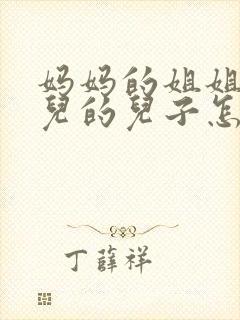 妈妈的姐姐
兒的兒子怎
丁薛祥